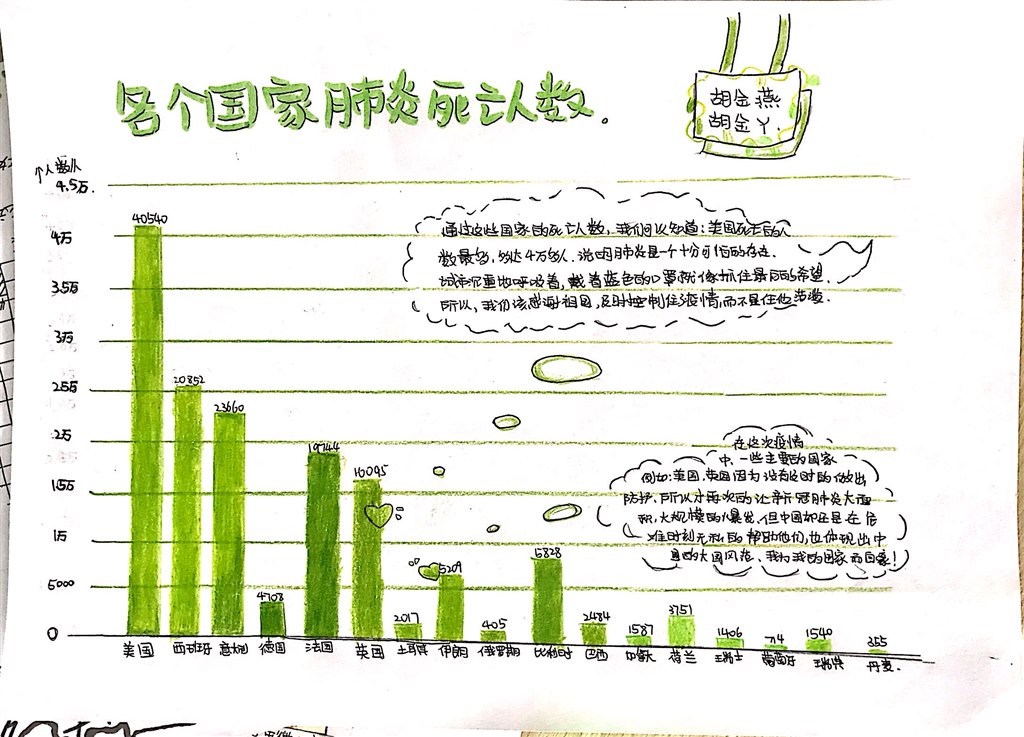 各个国家肺炎死亡人数.
胡金燕
胡金丫.
个人数/人
4.5万.
4万
3.5万
3万
2.5万
2万
1.5万
1万
5000
0
40540
20852
23660
4708
19744
16095
2017
5209
405
5828
2484
1587
3751
1406
714
1540
355
美国
西班牙
意大利
德国
法国
英国
土耳其
伊朗
俄罗斯
比利时
巴西
加拿大
荷兰
瑞士
葡萄牙
瑞典
丹麦.
通过这些国家的死亡人数,我们可以知道:美国死亡的人
数最多,多达4万多人.说明肺炎是一个十分可怕的存在.
试声沉重地呼吸着,戴着蓝色的口罩就像抓住最后的希望.
所以,我们该感谢祖国,及时控制住疫情,而不是任他泛滥.
在这次疫情
中,一些主要的国家
例如:美国,英国因为没有及时的做出
防护.所以才再次的让新冠肺炎大面
积,大规模的爆发.但中国却还是在危
难时刻无私的帮助他们,也体现出中
国的大国风范.我为我的国家而自豪!